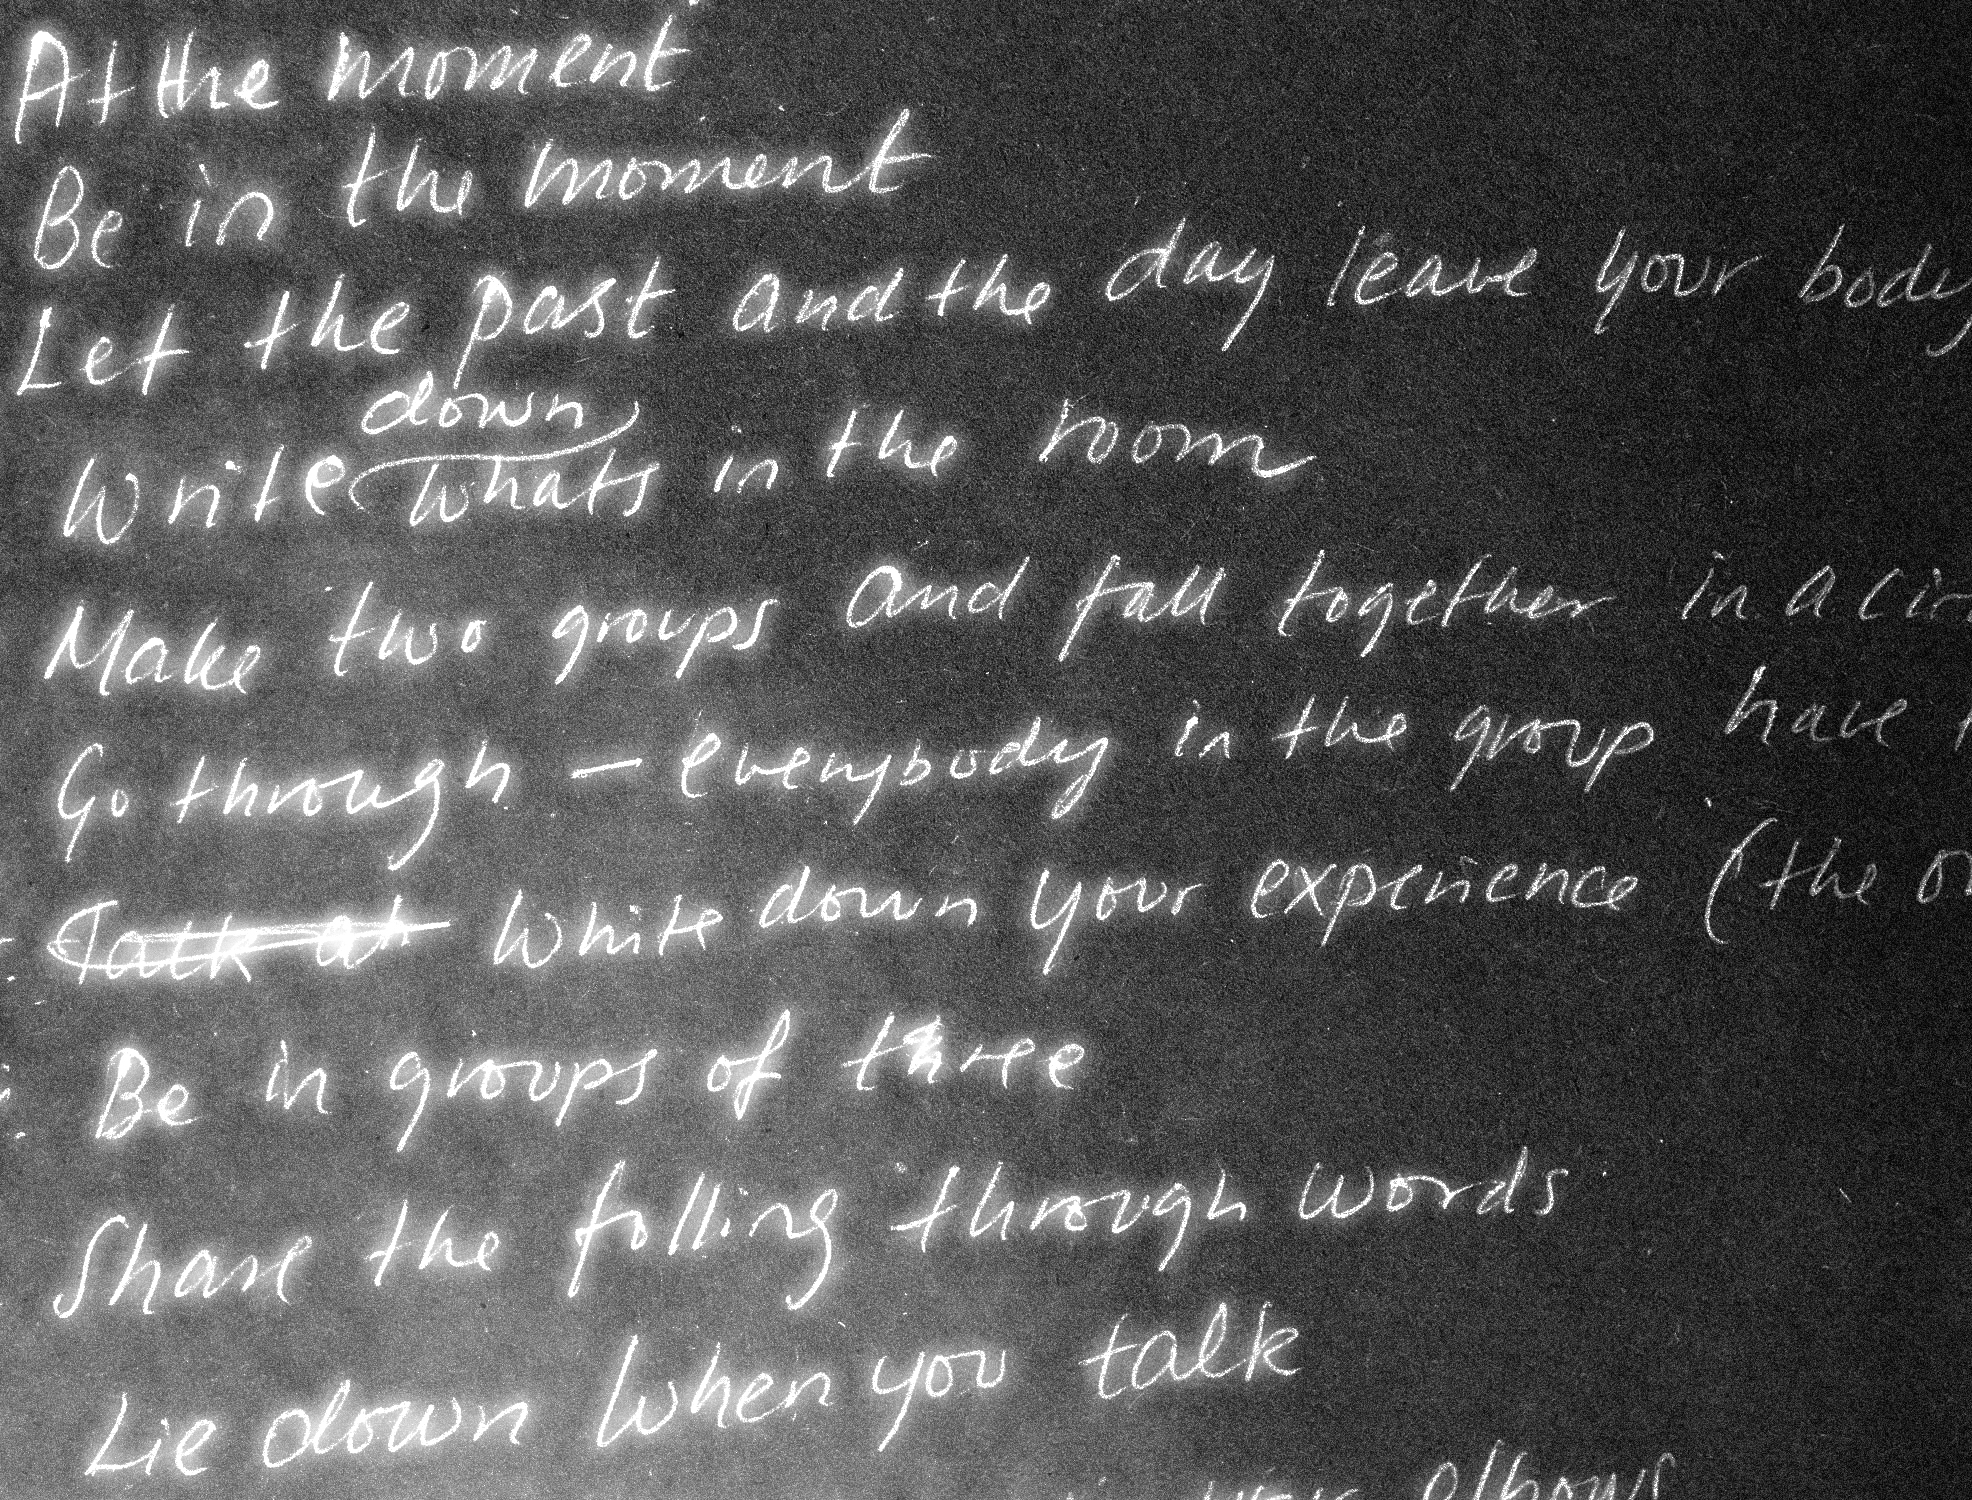 At the moment
Be in the moment
Let the past and the day leave your body
down
Write whats in the room
Make two groups and fall together in a cir
Go through – everybody in the group have
Talk at Write down your experience (the
Be in groups of three
Share the folling through words
Lie down when you talk
your elbows